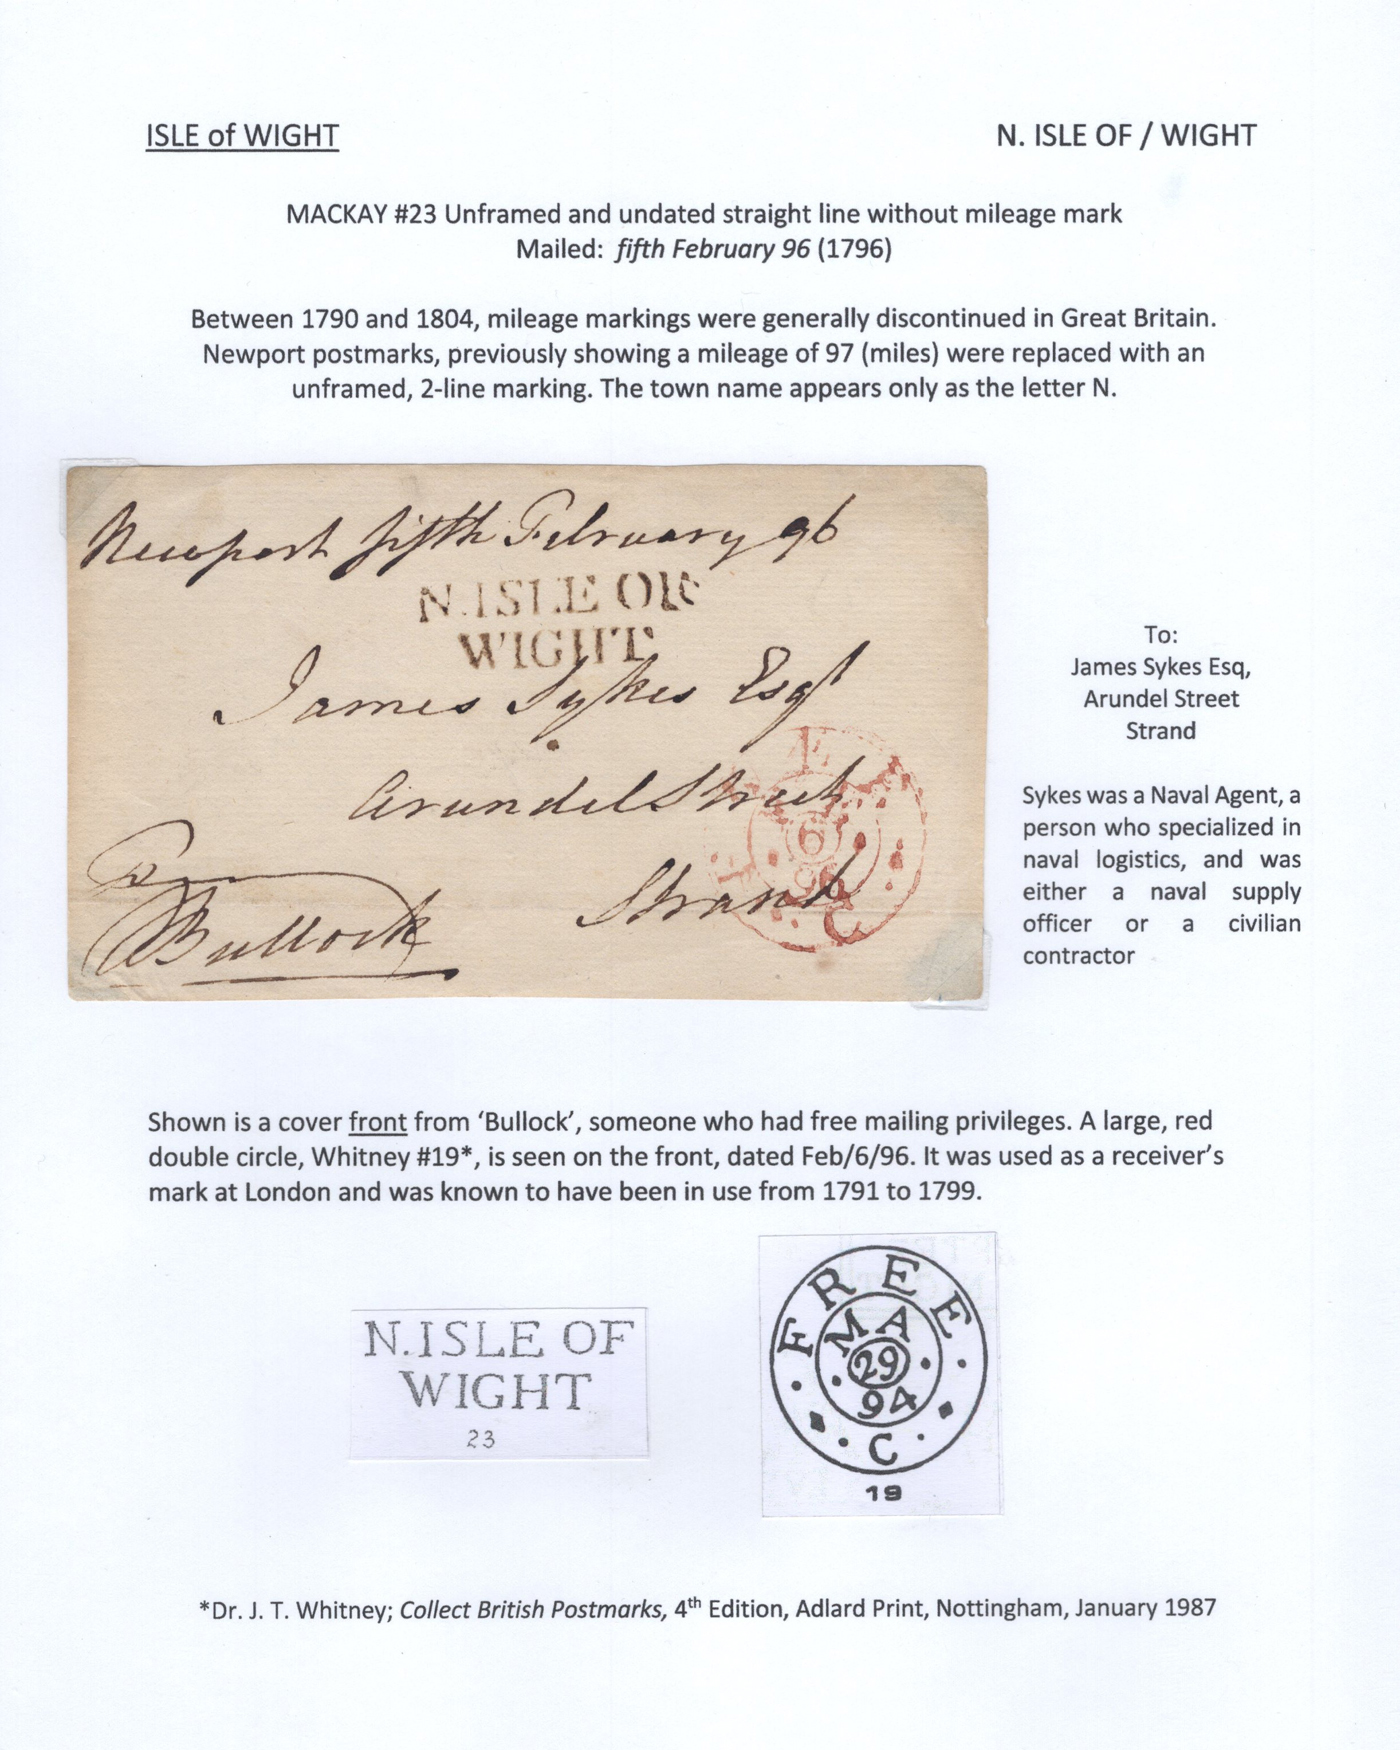 ISLE of WIGHT
N. ISLE OF / WIGHT
MACKAY #23 Unframed and undated straight line without mileage mark
Mailed: fifth February 96 (1796)
Between 1790 and 1804, mileage markings were generally discontinued in Great Britain.
Newport postmarks, previously showing a mileage of 97 (miles) were replaced with an
unframed, 2-line marking. The town name appears only as the letter N.
Newport fifth February 96
N.ISLE OF
WIGHT
James Sykes Esqr
Arundel Street
Strand
Bullock
E
6
96
C
To:
James Sykes Esq,
Arundel Street
Strand
Sykes was a Naval Agent, a
person who specialized in
naval logistics, and was
either a naval supply
officer or a civilian
contractor
Shown is a cover front from ‘Bullock’, someone who had free mailing privileges. A large, red
double circle, Whitney #19*, is seen on the front, dated Feb/6/96. It was used as a receiver’s
mark at London and was known to have been in use from 1791 to 1799.
N.ISLE OF
WIGHT
23
FREE
MA
29
94
C
19
*Dr. J. T. Whitney; Collect British Postmarks, 4th Edition, Adlard Print, Nottingham, January 1987